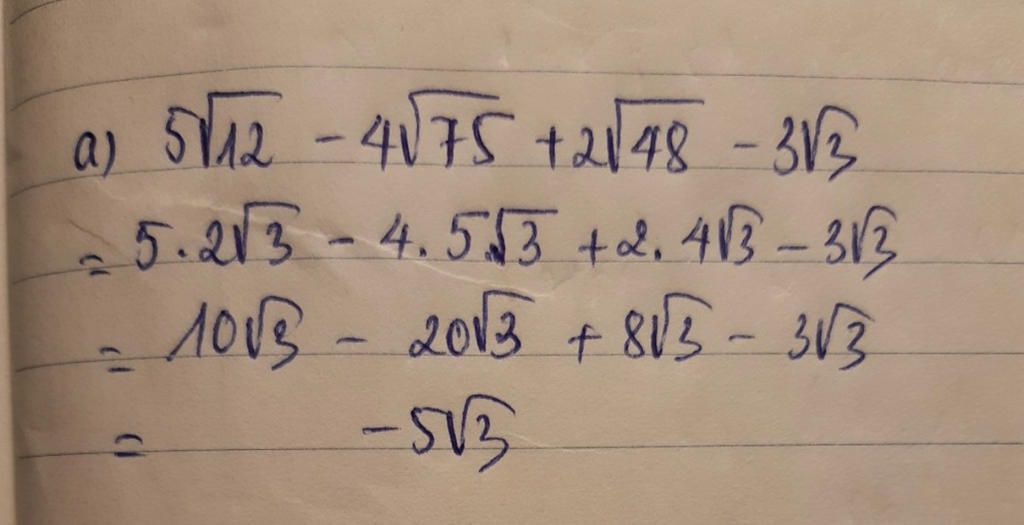 a) 5√12 - 4√75 + 2√48 - 3√3
= 5.2√3 - 4.5√3 + 2.4√3 - 3√3
= 10√3 - 20√3 + 8√3 - 3√3
= -5√3